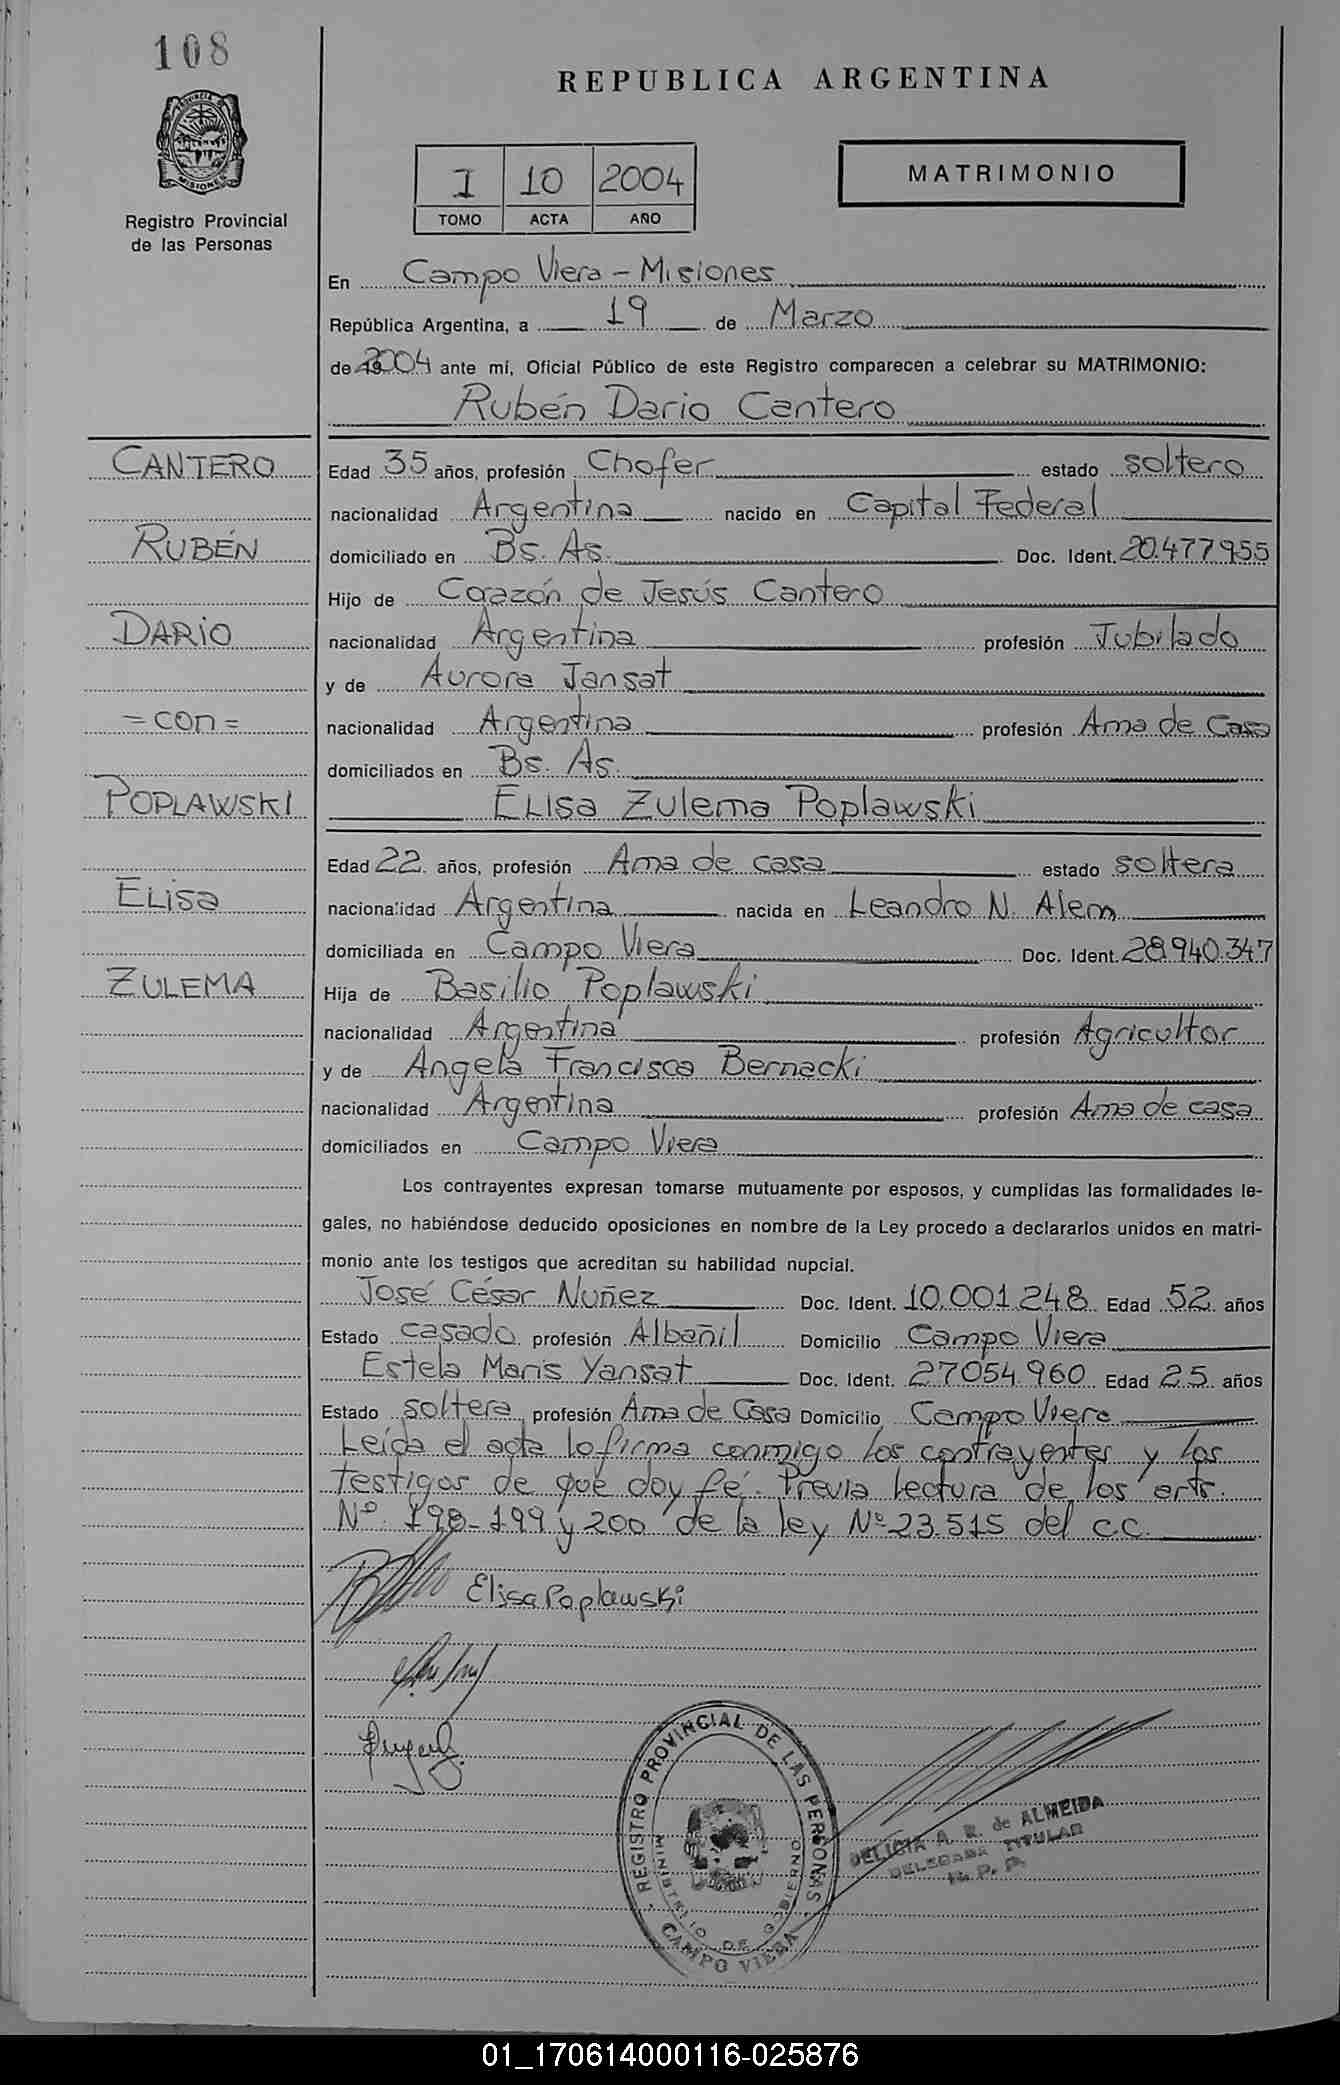 108
REPUBLICA ARGENTINA
PROVINCIA DE MISIONES
Registro Provincial
de las Personas
I 10 2004
TOMO ACTA AÑO
MATRIMONIO
En Campo Viera - Misiones
República Argentina, a 19 de Marzo
de 2004 ante mí, Oficial Público de este Registro comparecen a celebrar su MATRIMONIO:
Rubén Dario Cantero
CANTERO
Edad 35 años, profesión Chofer estado soltero
nacionalidad Argentina nacido en Capital Federal
RUBÉN
domiciliado en Bs. As. Doc. Ident. 20.477.955
Hijo de Corazón de Jesús Cantero
DARIO
nacionalidad Argentina profesión Jubilado
y de Aurora Jansat
= con =
nacionalidad Argentina profesión Ama de Casa
domiciliados en Bs. As.
POPLAWSKI
Elisa Zulema Poplawski
Edad 22 años, profesión Ama de casa estado soltera
ELisa
nacionalidad Argentina nacida en Leandro N. Alem
domiciliada en Campo Viera Doc. Ident. 28.940.347
ZULEMA
Hija de Basilio Poplawski
nacionalidad Argentina profesión Agricultor
y de Angela Francisca Bernacki
nacionalidad Argentina profesión Ama de casa
domiciliados en Campo Viera
Los contrayentes expresan tomarse mutuamente por esposos, y cumplidas las formalidades le-
gales, no habiéndose deducido oposiciones en nombre de la Ley procedo a declararlos unidos en matri-
monio ante los testigos que acreditan su habilidad nupcial.
José César Nuñez Doc. Ident. 10.001.248 Edad 52 años
Estado casado profesión Albañil Domicilio Campo Viera
Estela Maris Yansat Doc. Ident. 27054.960 Edad 25 años
Estado soltera profesión Ama de Casa Domicilio Campo Viera
Leída el acta lo firma conmigo los contrayentes y los
testigos de que doy fé. Previa lectura de los arts.
Nº 198-199 y 200 de la ley Nº 23.515 del c.c.
Elisa Poplawski
REGISTRO PROVINCIAL DE LAS PERSONAS
MINISTERIO DE GOBIERNO
CAMPO VIERA
DELICIA A. R. de ALMEIDA
DELEGADA TITULAR
R. P. P.
01_170614000116-025876